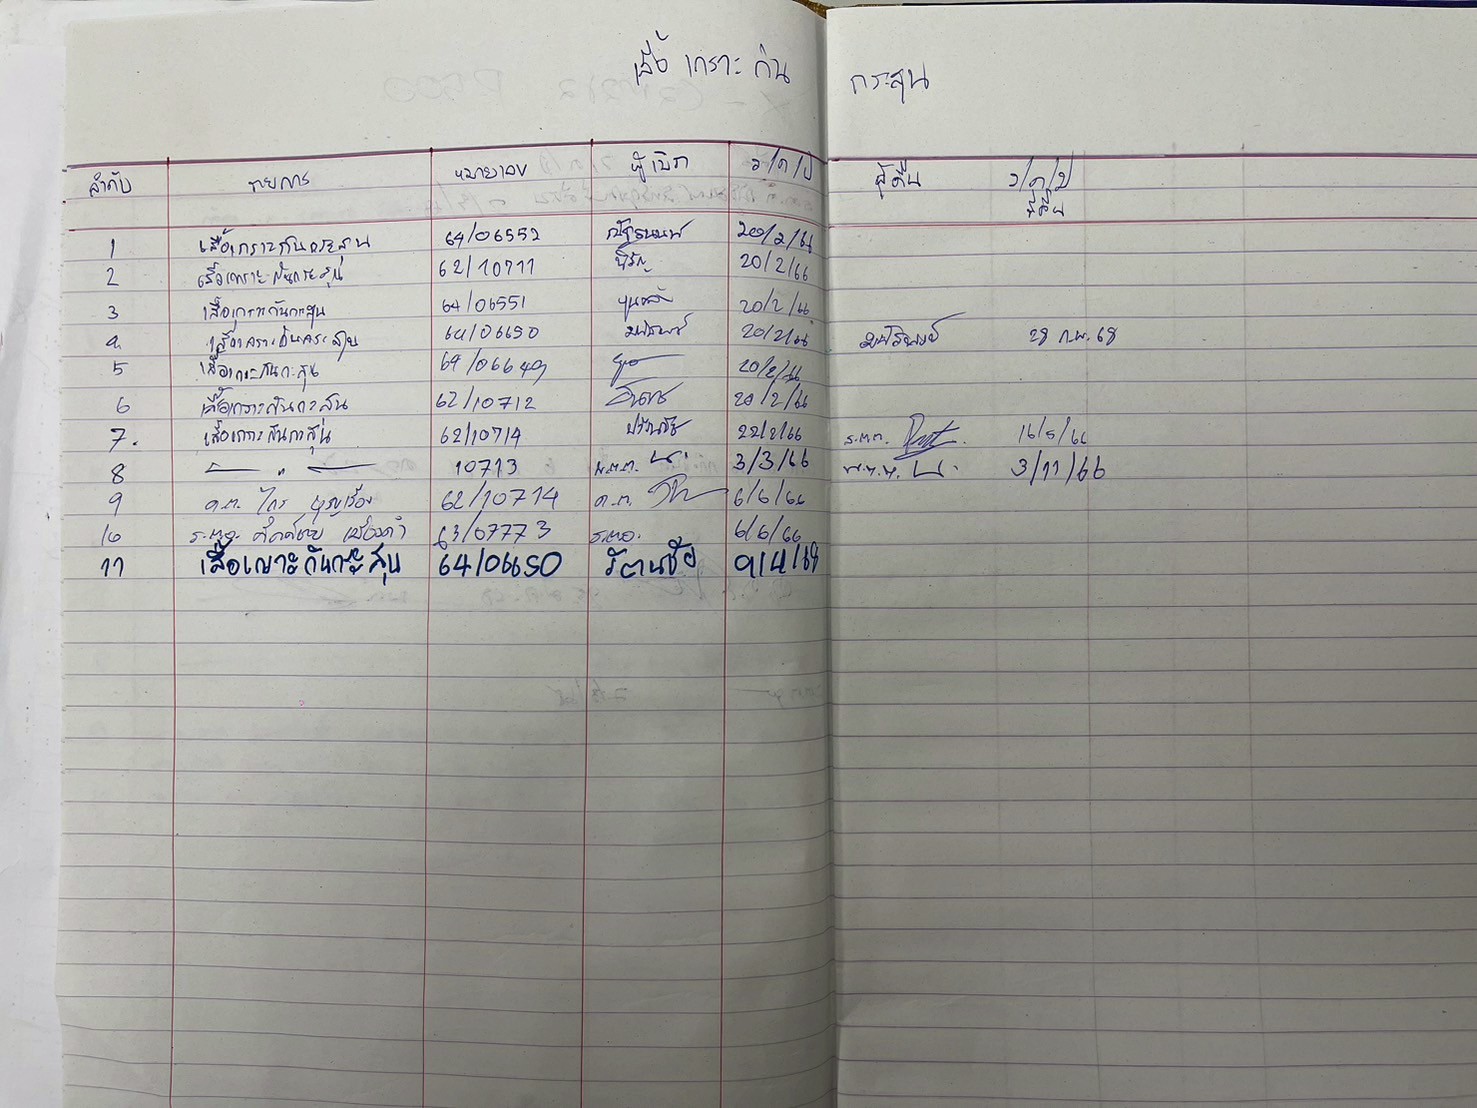 เสื้อ เกราะ กัน กระสุน
ลำดับ รายการ หมายเลข ผู้เบิก ว/ด/ป ผู้คืน ว/ด/ป
ที่คืน
1 เสื้อเกราะกันกระสุน 64/06552 ณัฐธนนท์ 20/2/66
2 เสื้อเกราะกันกระสุน 62/10711 20/2/66
3 เสื้อเกราะกันกระสุน 64/06551 20/2/66
4 เสื้อเกราะกันกระสุน 64/06650 20/2/66 28 ก.พ. 68
5 เสื้อเกราะกันกระสุน 64/06649 20/2/66
6 เสื้อเกราะกันกระสุน 62/10712 20/2/66
7. เสื้อเกราะกันกระสุน 62/10714 ปรัชญชัย 22/2/66 ร.ต.ต. 16/5/66
8 — " — 10713 พ.ต.ต. น. 3/3/66 พ.ต.ต. น. 3/11/66
9 ด.ต. ไกร บุญเรือง 62/10714 ด.ต. 6/6/66
10 ร.ต.อ. 63/07773 ร.ต.อ. 6/6/66
11 เสื้อเกราะกันกระสุน 64/06650 รัตนชัย 9/4/68